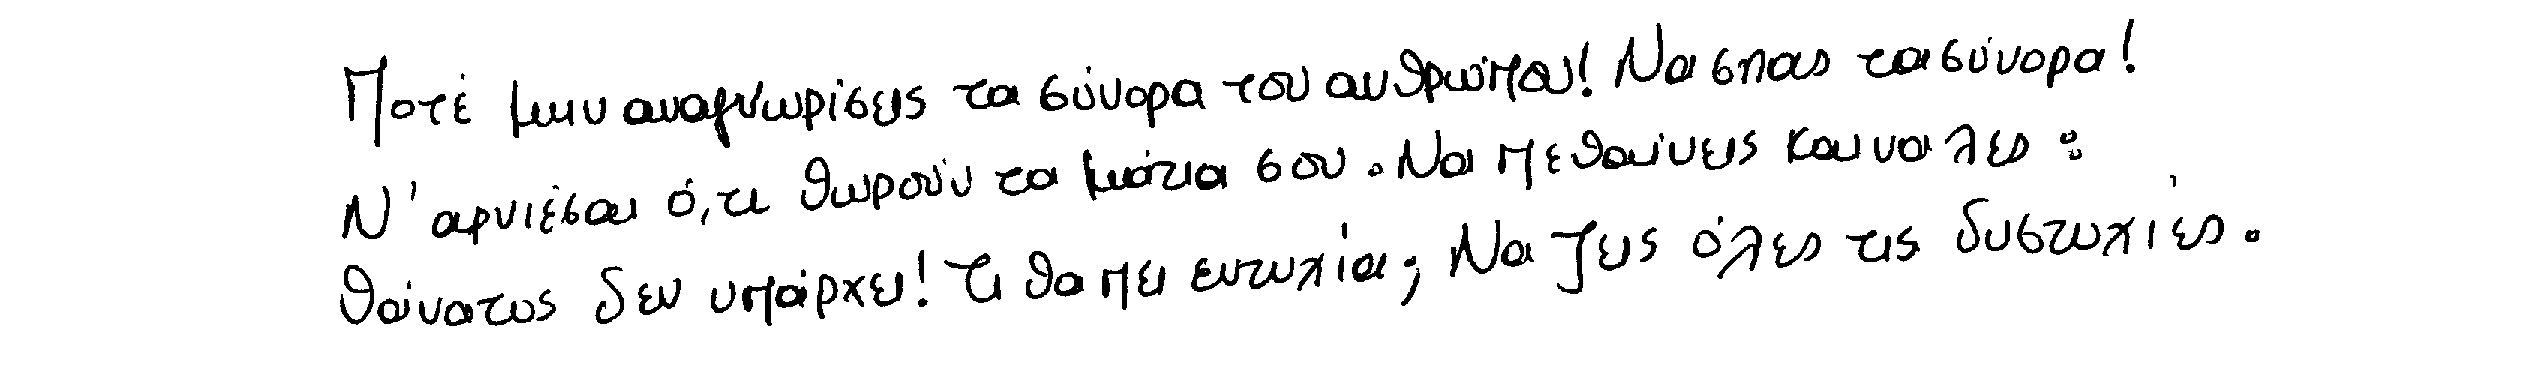 Ποτέ μην αναγνωρίσεις τα σύνορα του ανθρώπου! Να σπας τα σύνορα!
Ν' αρνιέσαι ό,τι θωρούν τα μάτια σου. Να πεθαίνεις και να λες:
θάνατος δεν υπάρχει! Τι θα πει ευτυχία; Να ζεις όλες τις δυστυχίες.